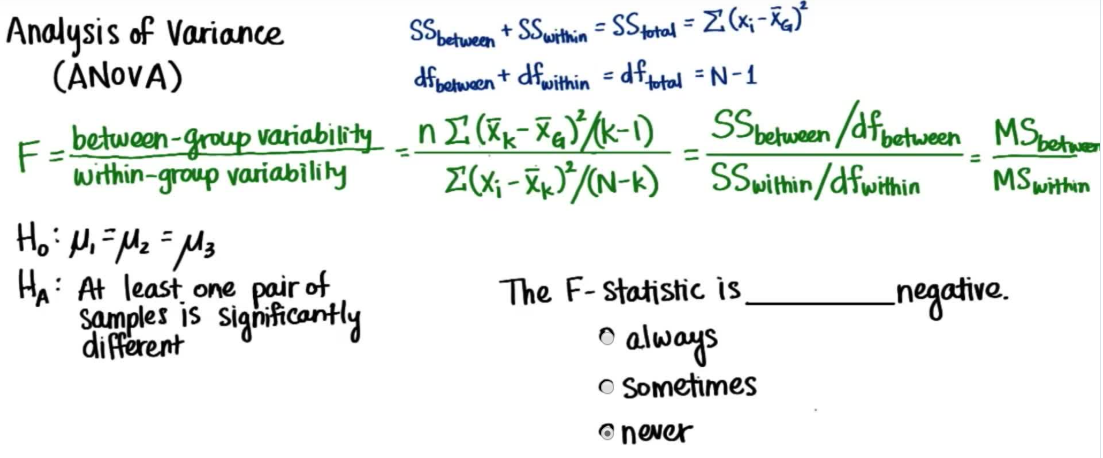 Analysis of Variance
(ANOVA)
SSbetween + SSwithin = SStotal = Σ(xᵢ - x̄G)²
dfbetween + dfwithin = dftotal = N-1
F = between-group variability / within-group variability = n Σ(x̄k - x̄G)²/(k-1) / Σ(xᵢ - x̄k)²/(N-k) = SSbetween/dfbetween / SSwithin/dfwithin = MSbetween / MSwithin
H₀: μ₁ = μ₂ = μ₃
HA: At least one pair of
samples is significantly
different
The F-statistic is ________ negative.
always
sometimes
never